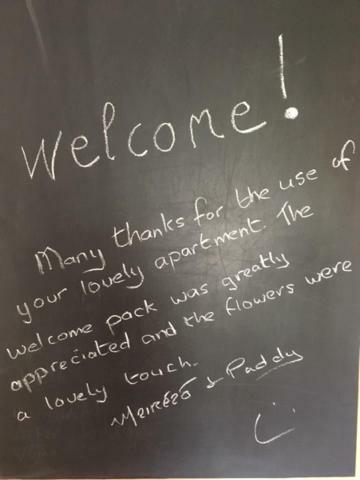 Welcome!
Many thanks for the use of
your lovely apartment. The
welcome pack was greatly
appreciated and the flowers were
a lovely touch.
& Paddy